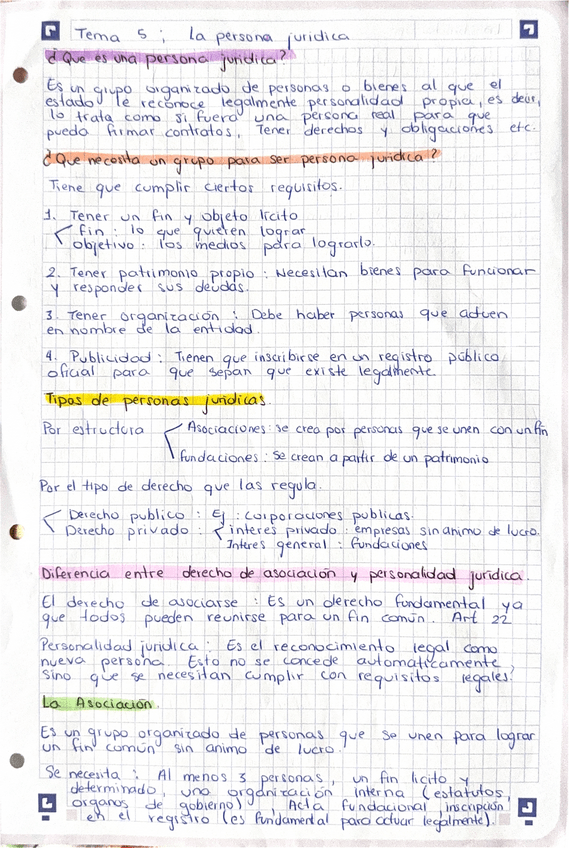 Tema 5 ; La persona juridica
¿Que es una persona juridica?
Es un grupo organizado de personas o bienes al que el
estado le reconoce legalmente personalidad propia, es decir,
lo trata como si fuera una persona real para que
pueda firmar contratos, Tener derechos y obligaciones etc.
¿Que necesita un grupo para ser persona juridica?
Tiene que cumplir ciertos requisitos.
1. Tener un fin y objeto licito
fin : lo que quieren lograr
objetivo : los medios para lograrlo.
2. Tener patrimonio propio : Necesitan bienes para funcionar
y responder sus deudas.
3. Tener organización : Debe haber personas que actuen
en nombre de la entidad.
4. Publicidad : Tienen que inscribirse en un registro público
oficial para que sepan que existe legalmente.
Tipos de personas juridicas.
Por estructura
Asociaciones : se crea por personas que se unen con un fin
fundaciones : Se crean a partir de un patrimonio
Por el tipo de derecho que las regula.
Derecho publico : Ej : corporaciones publicas.
Derecho privado : interes privado : empresas sin animo de lucro.
Interes general : fundaciones
Diferencia entre derecho de asociación y personalidad juridica.
El derecho de asociarse : Es un derecho fundamental ya
que todos pueden reunirse para un fin común. Art 22
Personalidad juridica : Es el reconocimiento legal como
nueva persona. Esto no se concede automaticamente,
sino que se necesitan cumplir con requisitos legales.
La Asociación
Es un grupo organizado de personas que se unen para lograr
un fin común sin animo de lucro.
Se necesita : Al menos 3 personas, un fin licito y
determinado, una organización interna (estatutos,
organos de gobierno), Acta fundacional, inscripción
en el registro (es fundamental para actuar legalmente).